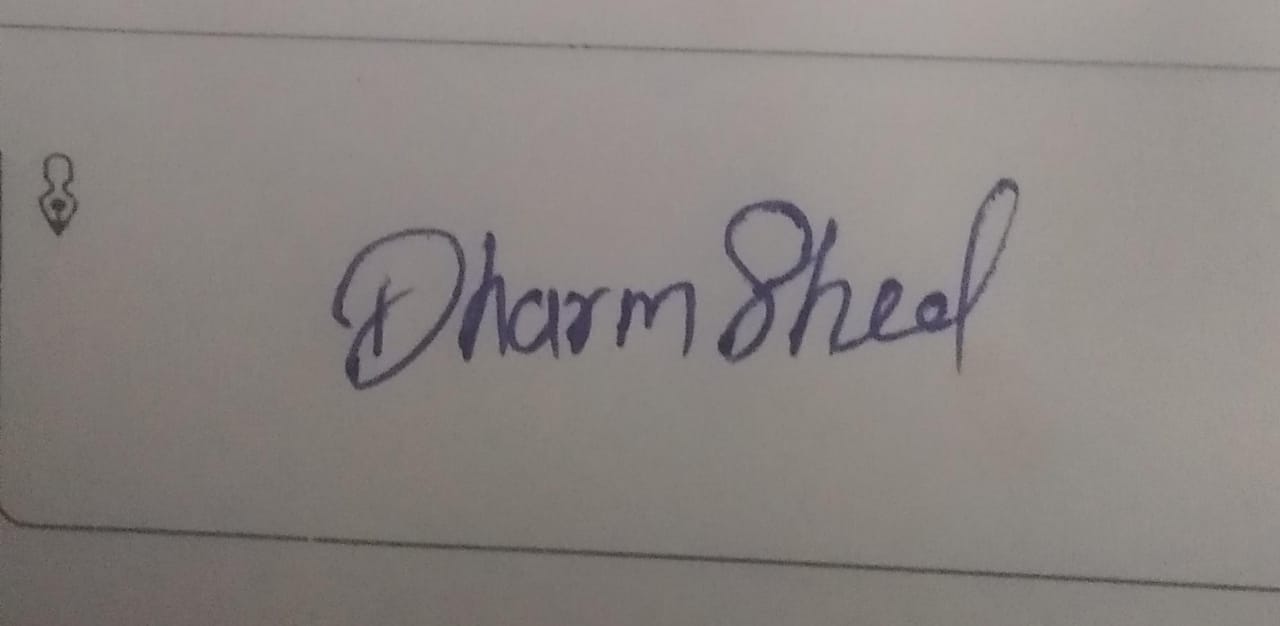 Dharm Sheel